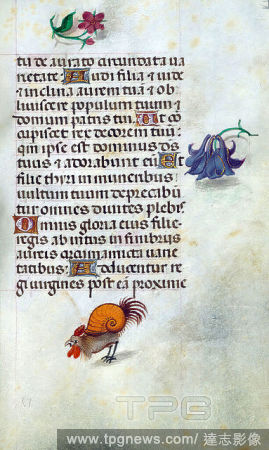 tu de aurato circundata va
rietate Audi filia et vide
et inclina aurem tuā et ob
liviscere populum tuum et
domum patris tui Et cō
cupiscet rex decorem tuū:
qm̄ ipse est dominus deus
tuus et adorabunt eū Et
filie thyri in muneribus
vultum tuum deprecabū
tur omnes divites plebis
Omnis gloria eius filie
regis ab intus in fimbriis
aureis circūamicta varie
tatibus Adducentur re
gi virgines post eā proxime
TPG
www.tpgnews.com / 達志影像